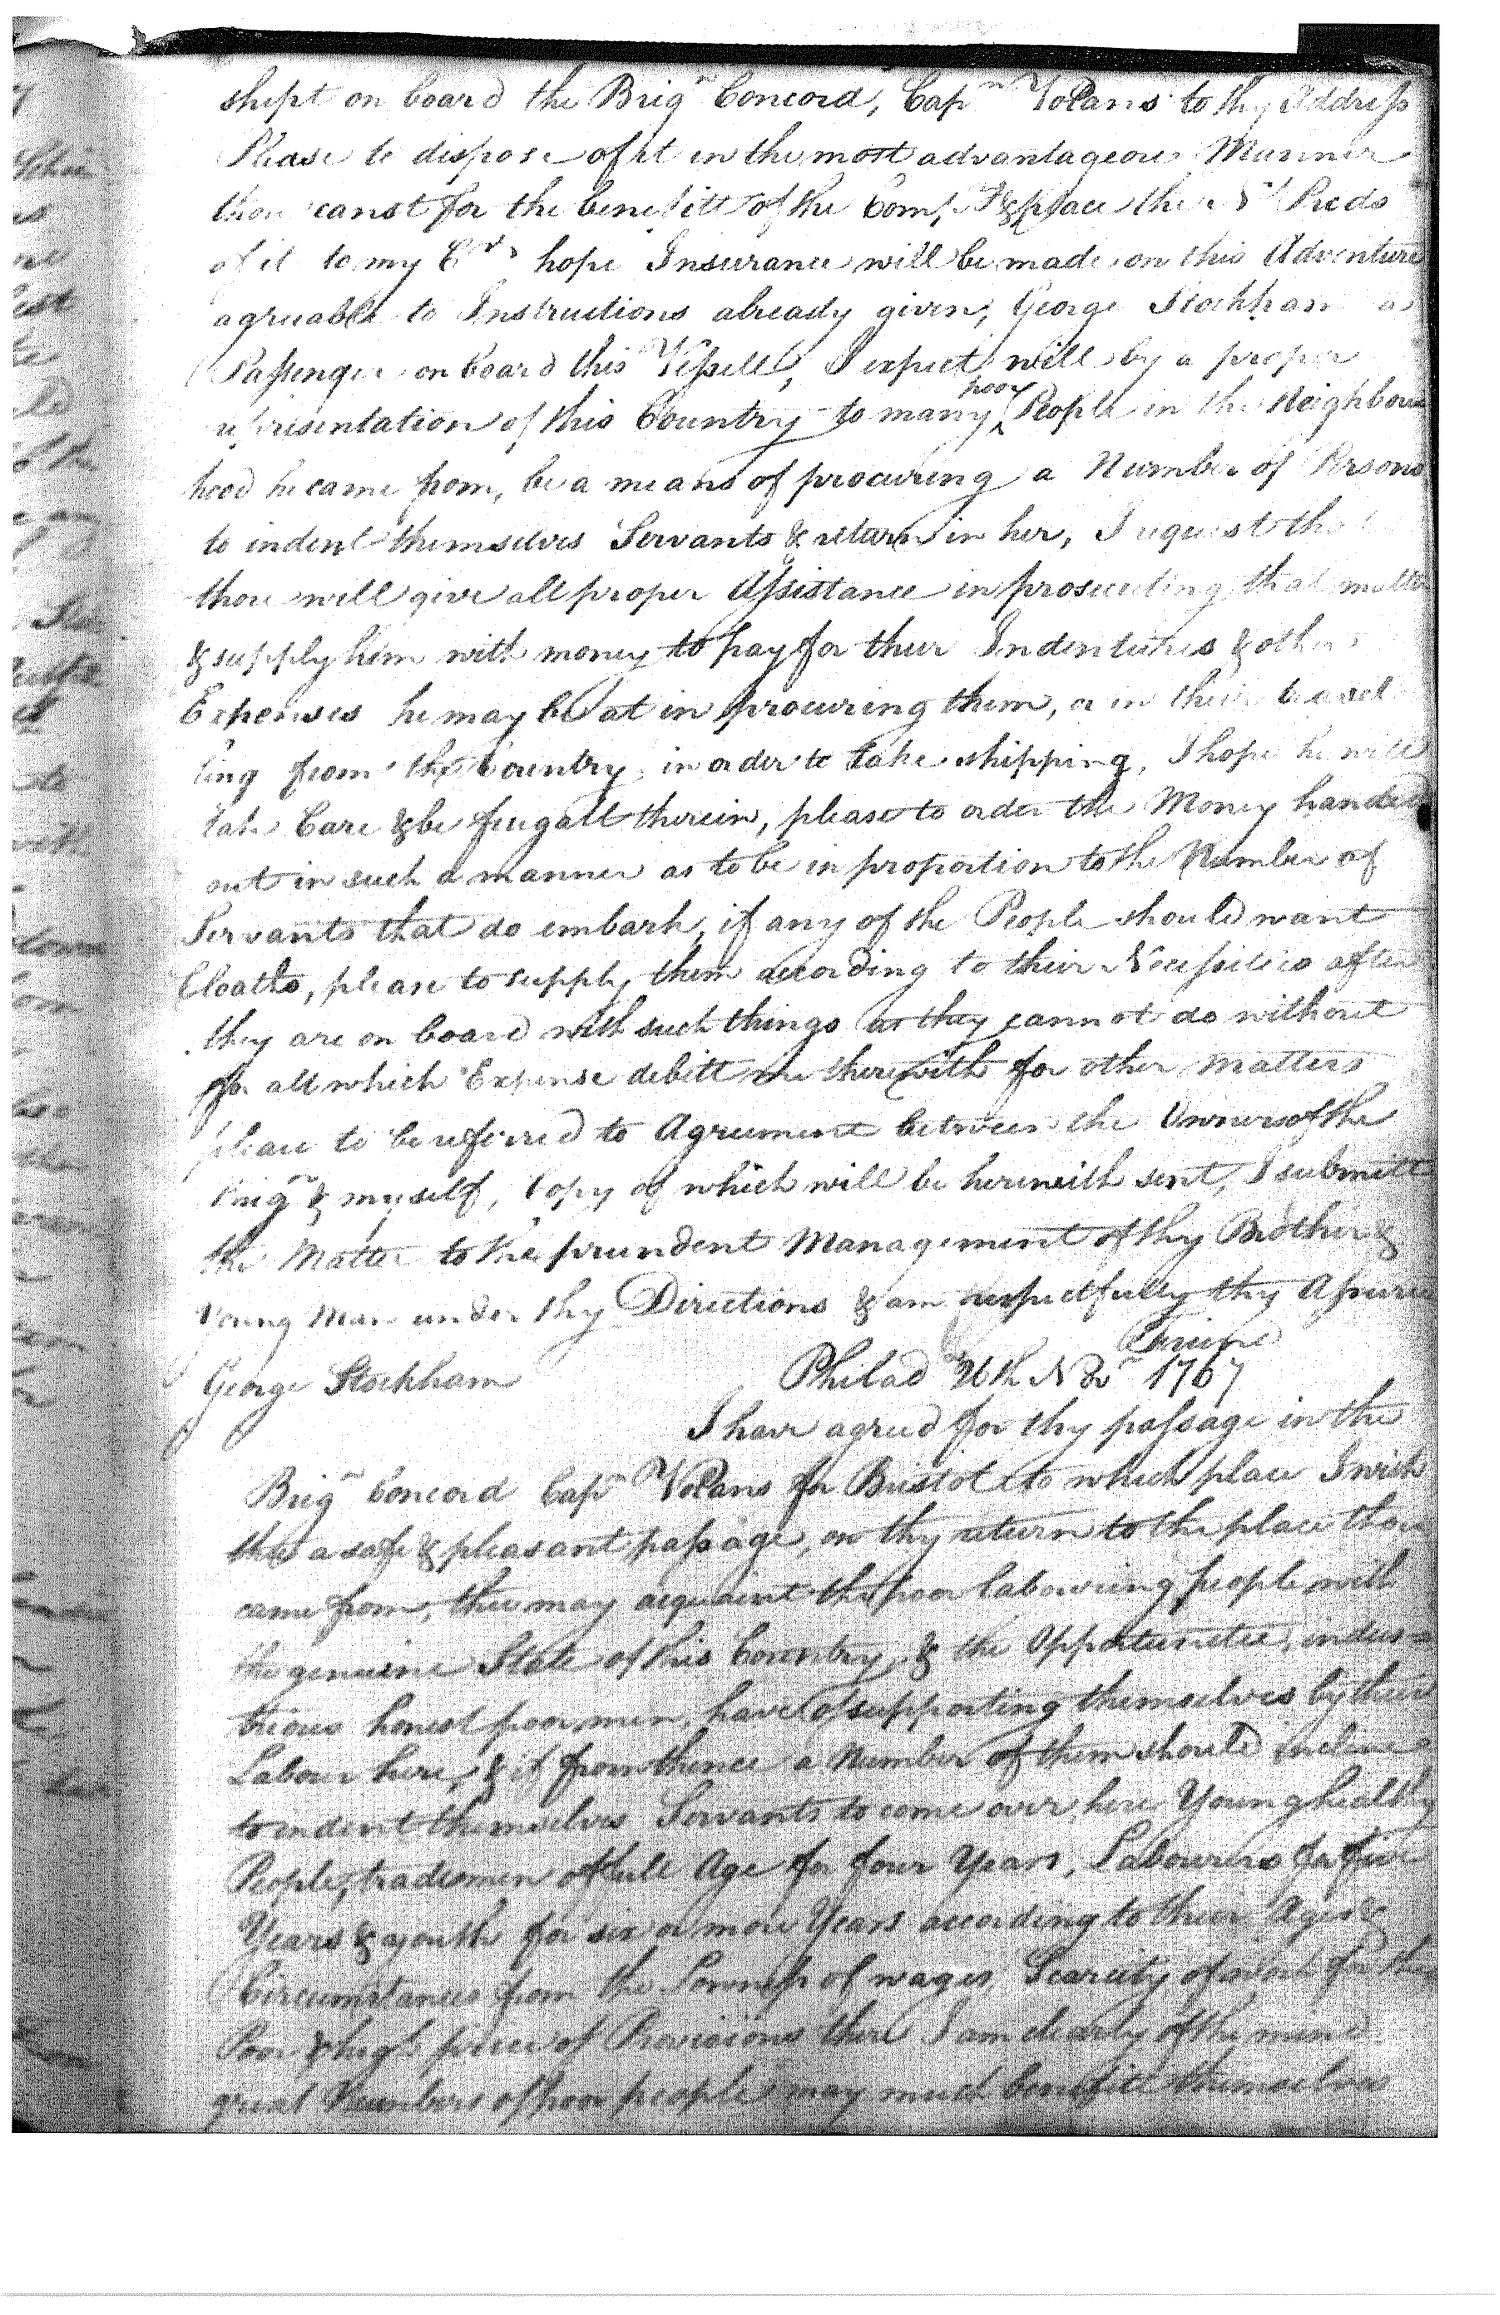 shipt on board the Brign Concord, Capn Volans to thy Address
Please to dispose of it in the most advantageous Manner
thou canst for the benefitt of the Comp & place the Nt Prcds
of it to my Crt hope Insurance will be made on this Adventure
agreeable to Instructions already given, George Stockham a
Passenger on board this Vessell, I expect will by a proper
representation of this Country to many poor People in the Neighbour
hood he came from, be a means of procuring a Number of Persons
to indent themselves Servants & return in her, I request that
thou will give all proper Assistance in prosecuting that matter
& supply him with money to pay for their Indentures & other
Expenses he may be at in procuring them, or in their travel
ling from the Country in order to take shipping, I hope he will
take Care & be frugall therein, please to order the Money handed
out in such a manner as to be in proportion to the Number of
Servants that do embark, if any of the People should want
Cloaths, please to supply them according to their Necessities after
they are on board with such things as they cannot do without
for all which Expense debitt me therewith for other matters
please to be referred to Agreement between the Owners of the
Brign & myself, Copy of which will be herewith sent, I submitt
the Matter to the prundent Management of thy Brother &
Young Man under thy Directions & am respectfully thy Assured
Friend
George Stockham Philada 26th 1767
I have agreed for thy passage in the
Brign Concord Capn Volans for Bristol to which place I wish
thee a safe & pleasant passage, on thy return to the place thou
came from, thee may acquaint the poor labouring people with
the genuine State of this Country & the Opportunitee, indus=
trious honest poor men, have of supporting themselves by their
Labour here, & if from thence a Number of them should incline
to indent themselves Servants to come over here Young healthy
People, tradesmen of full Age for four Years, Labourers for five
Years & youth for six or more Years according to their Ages &
Circumstances from the Lowness of wages, Scarcity of work for the
Poor & high price of Provisions there I am clearly of the mind
great Numbers of poor people may much benefitt themselves